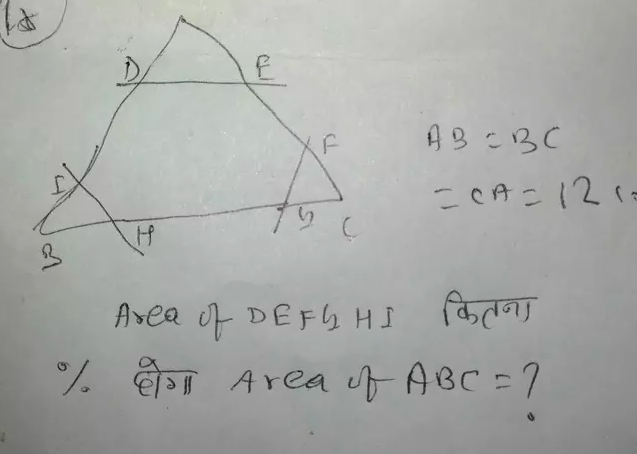 D E
F
I
G
H
B
C
AB = BC
= CA = 12
Area of DEFGHI कितना
% होगा Area of ABC = ?